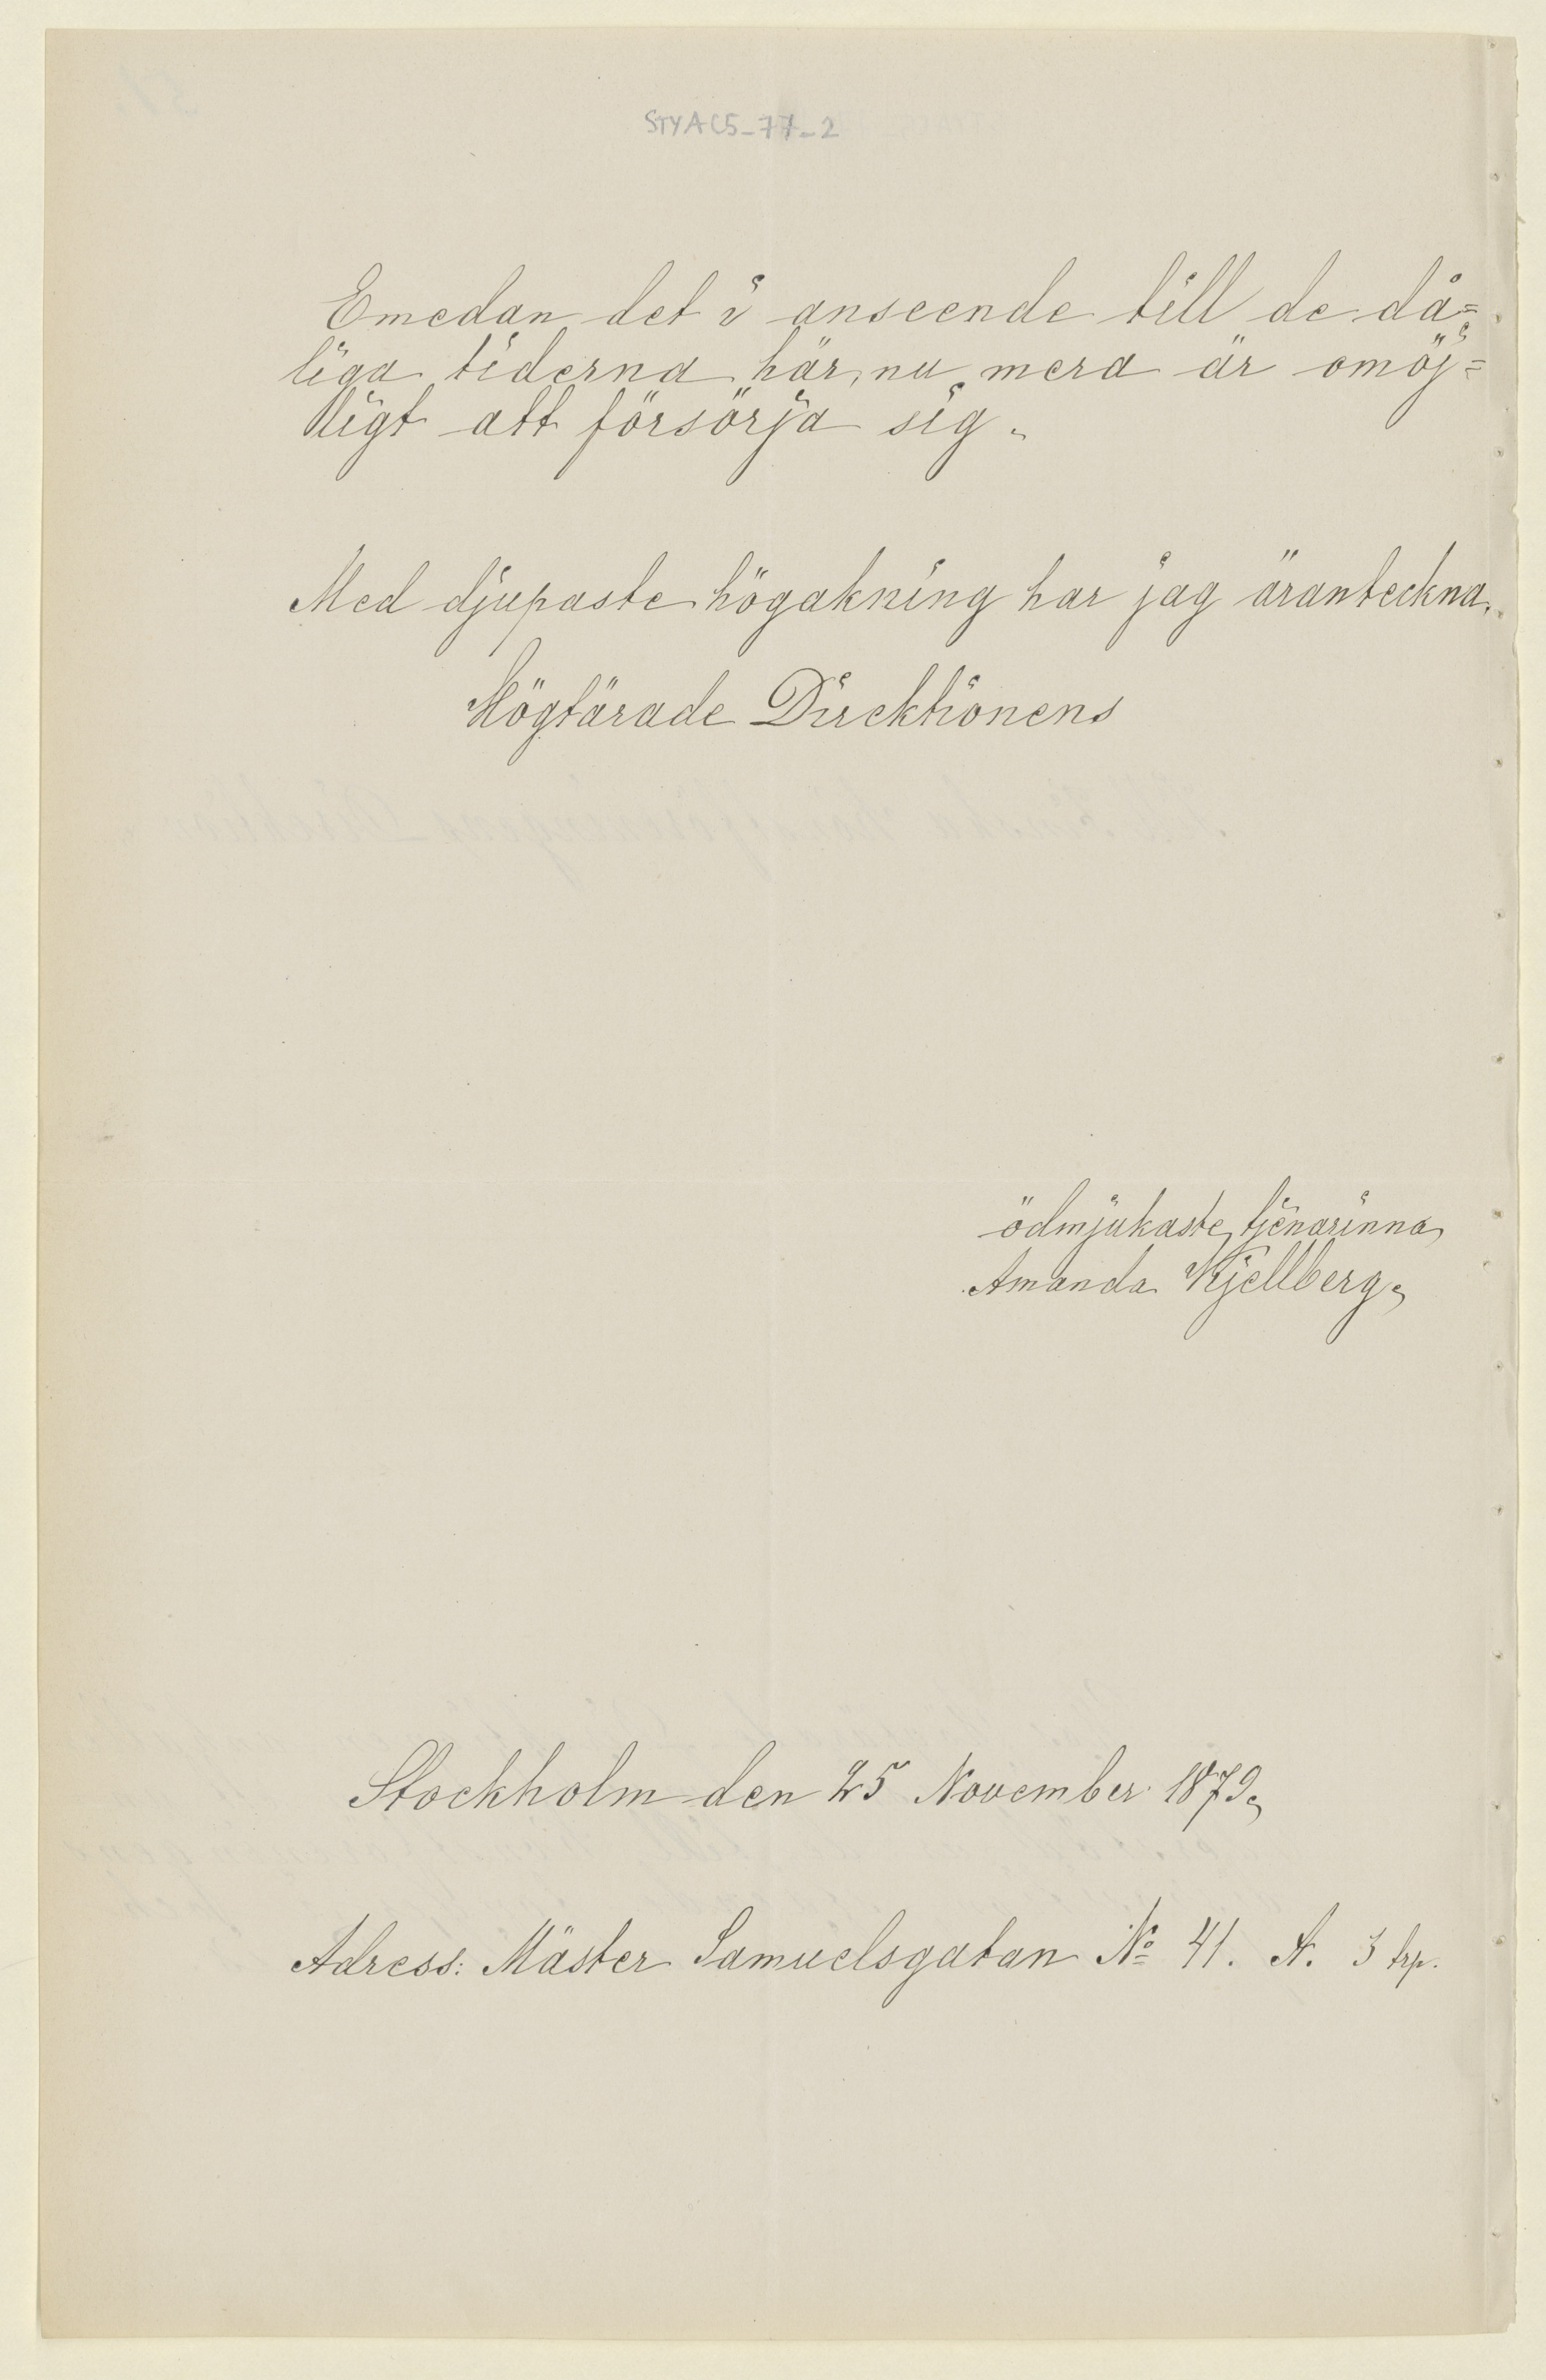 STYAC5_77_2
Emedan det i anseende till de då=
liga tiderna här, nu mera är omöj=
ligt att försörja sig.
Med djupaste högakning har jag äranteckna.
Högtärade Direktionens
ödmjukaste tjenarinna
Amanda Kjellberg.
Stockholm den 25 November 1879.
Adress: Mäster Samuelsgatan No 41. A. 3 trp.